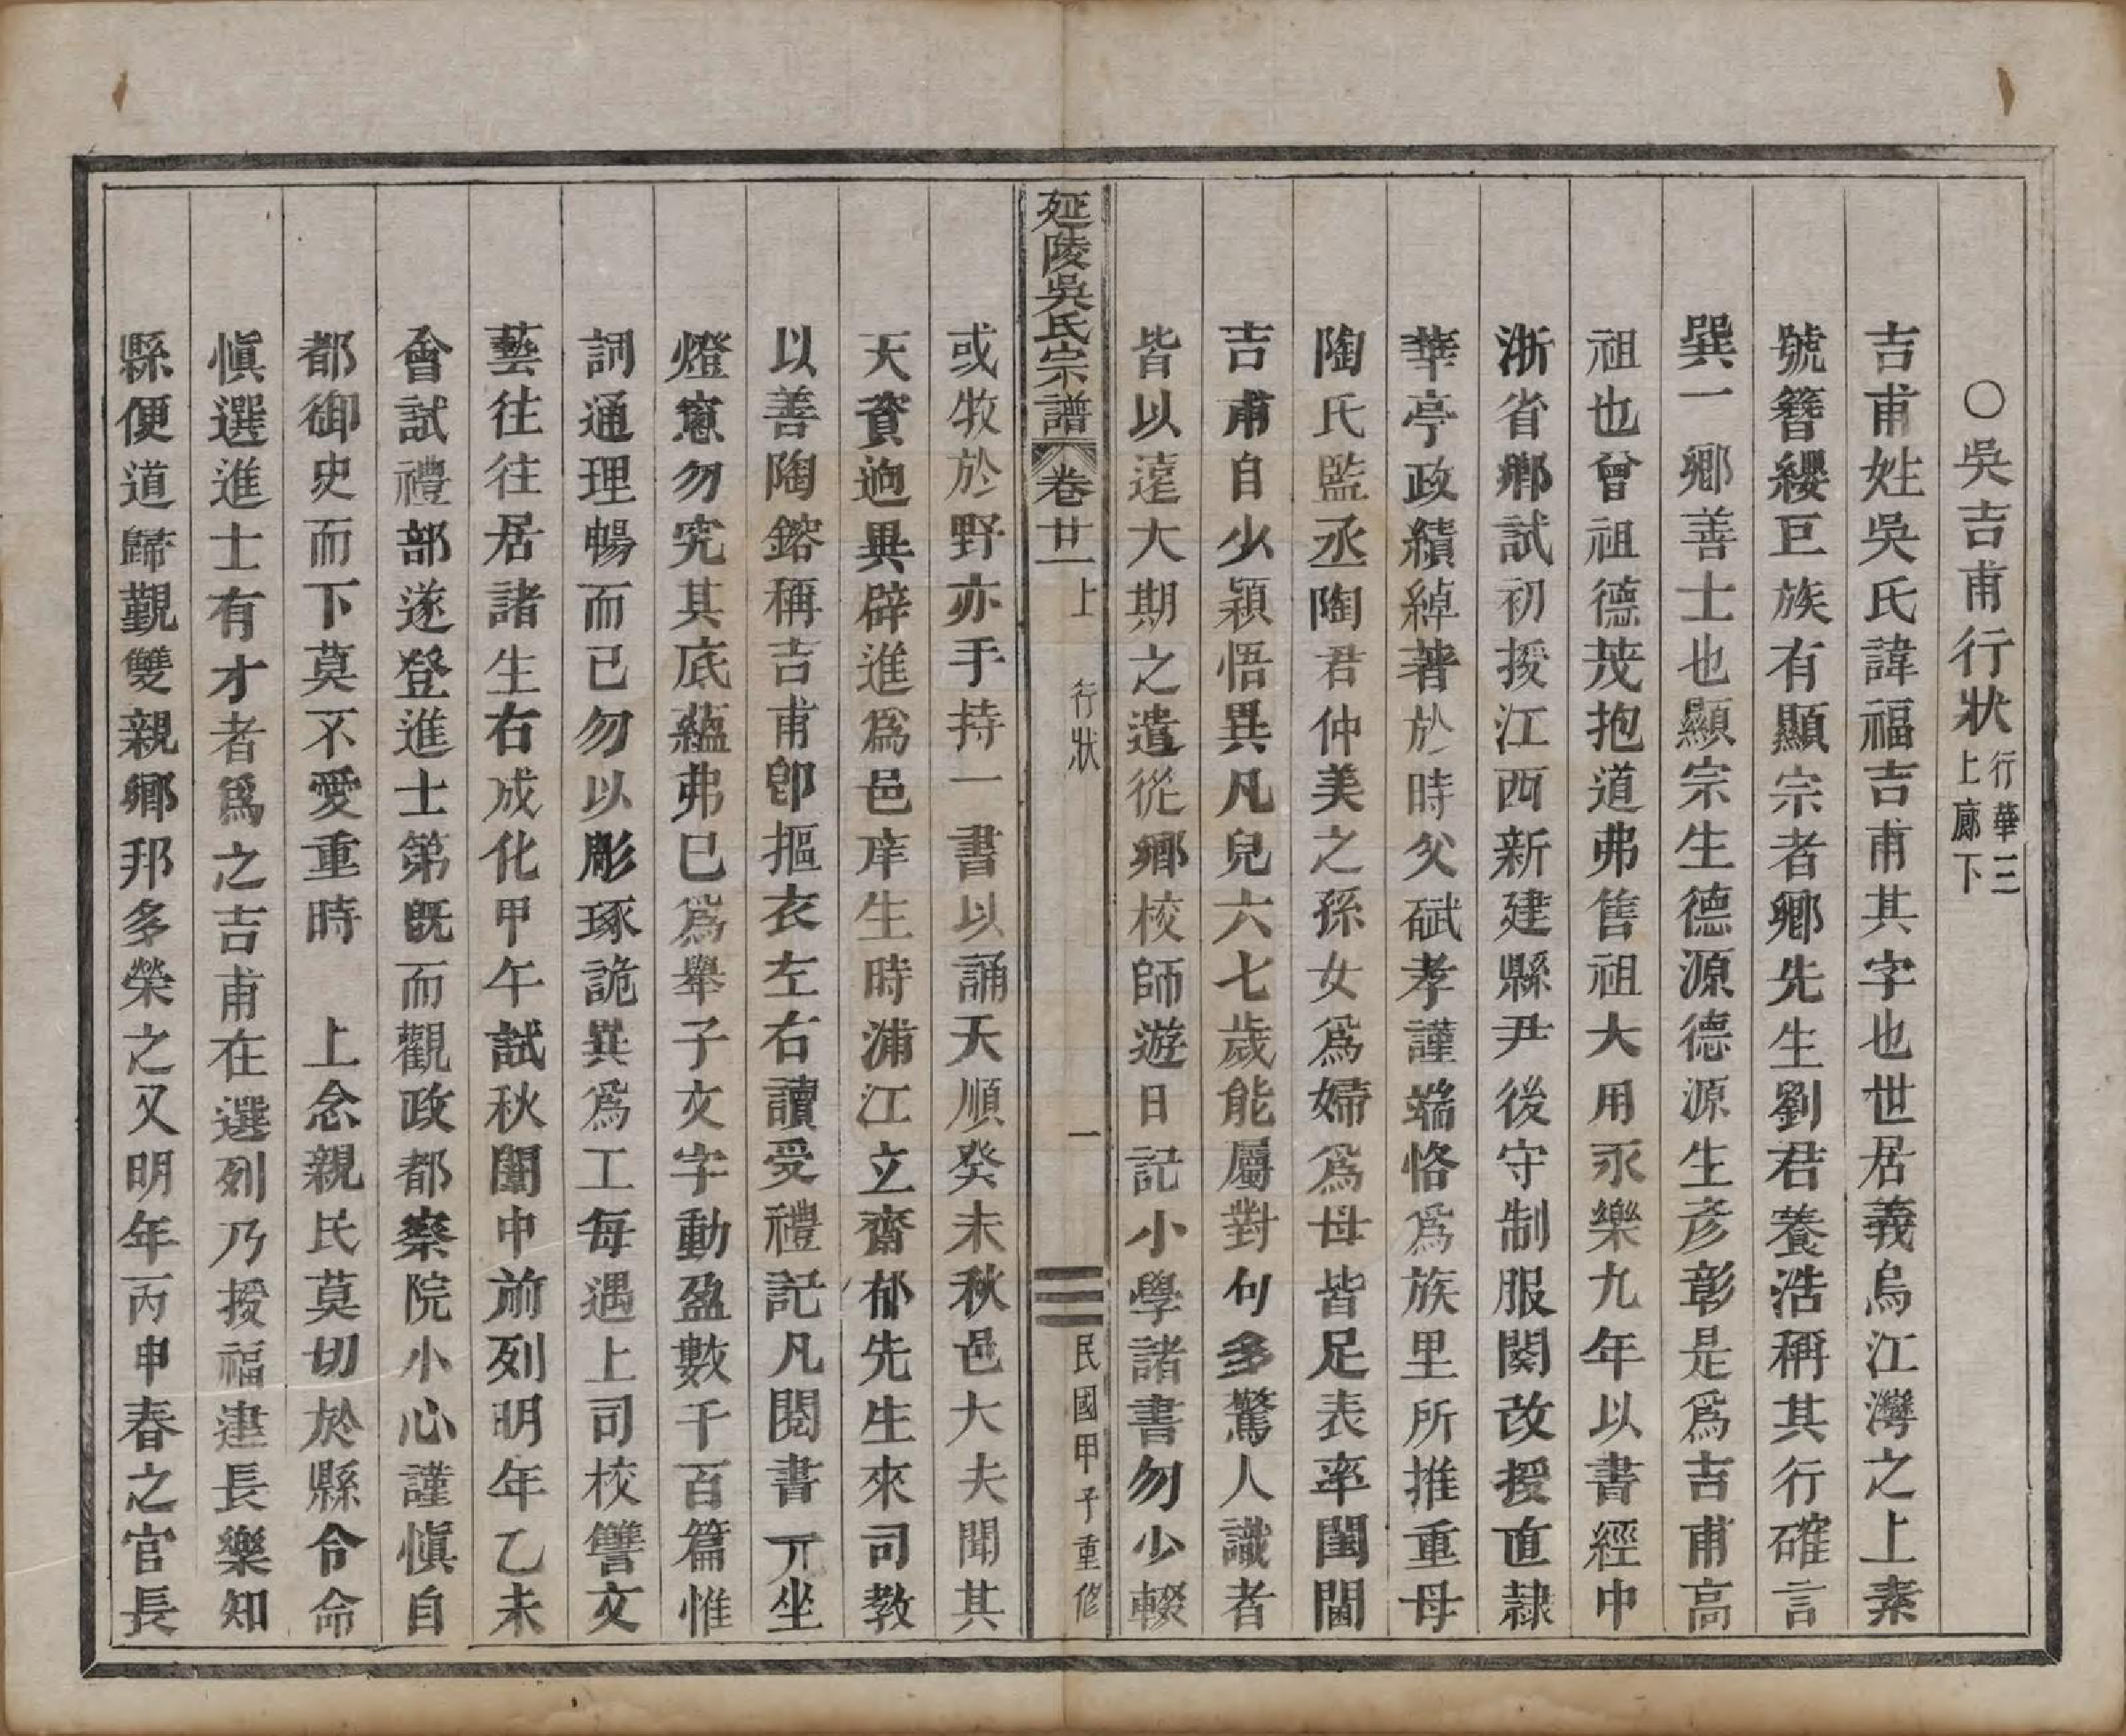 ○吳吉甫行狀行華三上廊下
吉甫姓吳氏諱福吉甫其字也世居義烏江灣之上素
號簪纓巨族有顯宗者鄉先生劉君養浩稱其行確言
巽一鄉善士也顯宗生德源德源生彥彰是爲吉甫高
祖也曾祖德茂抱道弗售祖大用永樂九年以書經中
浙省鄉試初授江西新建縣尹後守制服闋改授直隷
華亭政績綽著於時父碔孝謹端恪爲族里所推重母
陶氏監丞陶君仲美之孫女爲婦爲母皆足表率閨閫
吉甫自少穎悟異凡兒六七歲能屬對句多驚人識者
皆以遠大期之遣從鄉校師遊日記小學諸書勿少輟
延陵吳氏宗譜 卷廿一上 行狀 一 民國甲子重修
或牧於野亦手持一書以誦天順癸未秋邑大夫聞其
天資逈異辟進爲邑庠生時浦江立齋郁先生來司教
以善陶鎔稱吉甫卽摳衣左右讀受禮記凡閱書兀坐
燈窻勿究其底蘊弗已爲舉子文字動盈數千百篇惟
詞通理暢而已勿以彫琢詭異爲工每遇上司校讐文
藝往往居諸生右成化甲午試秋闈中前列明年乙未
會試禮部遂登進士第旣而觀政都察院小心謹愼自
都御史而下莫不愛重時　上念親民莫切於縣令命
愼選進士有才者爲之吉甫在選列乃授福建長樂知
縣便道歸覲雙親鄉邦多榮之又明年丙申春之官長